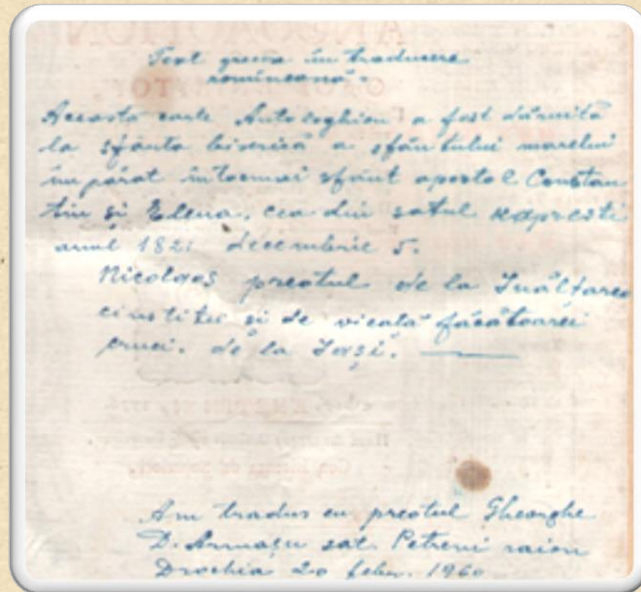 Text grecesc în traducere
romîneană.
Aceasta carte Antologhion a fost dăruită
la sfânta biserică a sfântului marelui
împărat întocmai sfânt apostol Constan
tin și Elena, cea din satul
anul 1821 decembrie 5.
Nicolaos preotul de la Înălțarea
cinstitei și de vieață făcătoarei
cruci. de la Iași.
Am tradus eu preotul Gheorghe
D. Armașu sat. Petreni raion
Drochia 20 febr. 1960